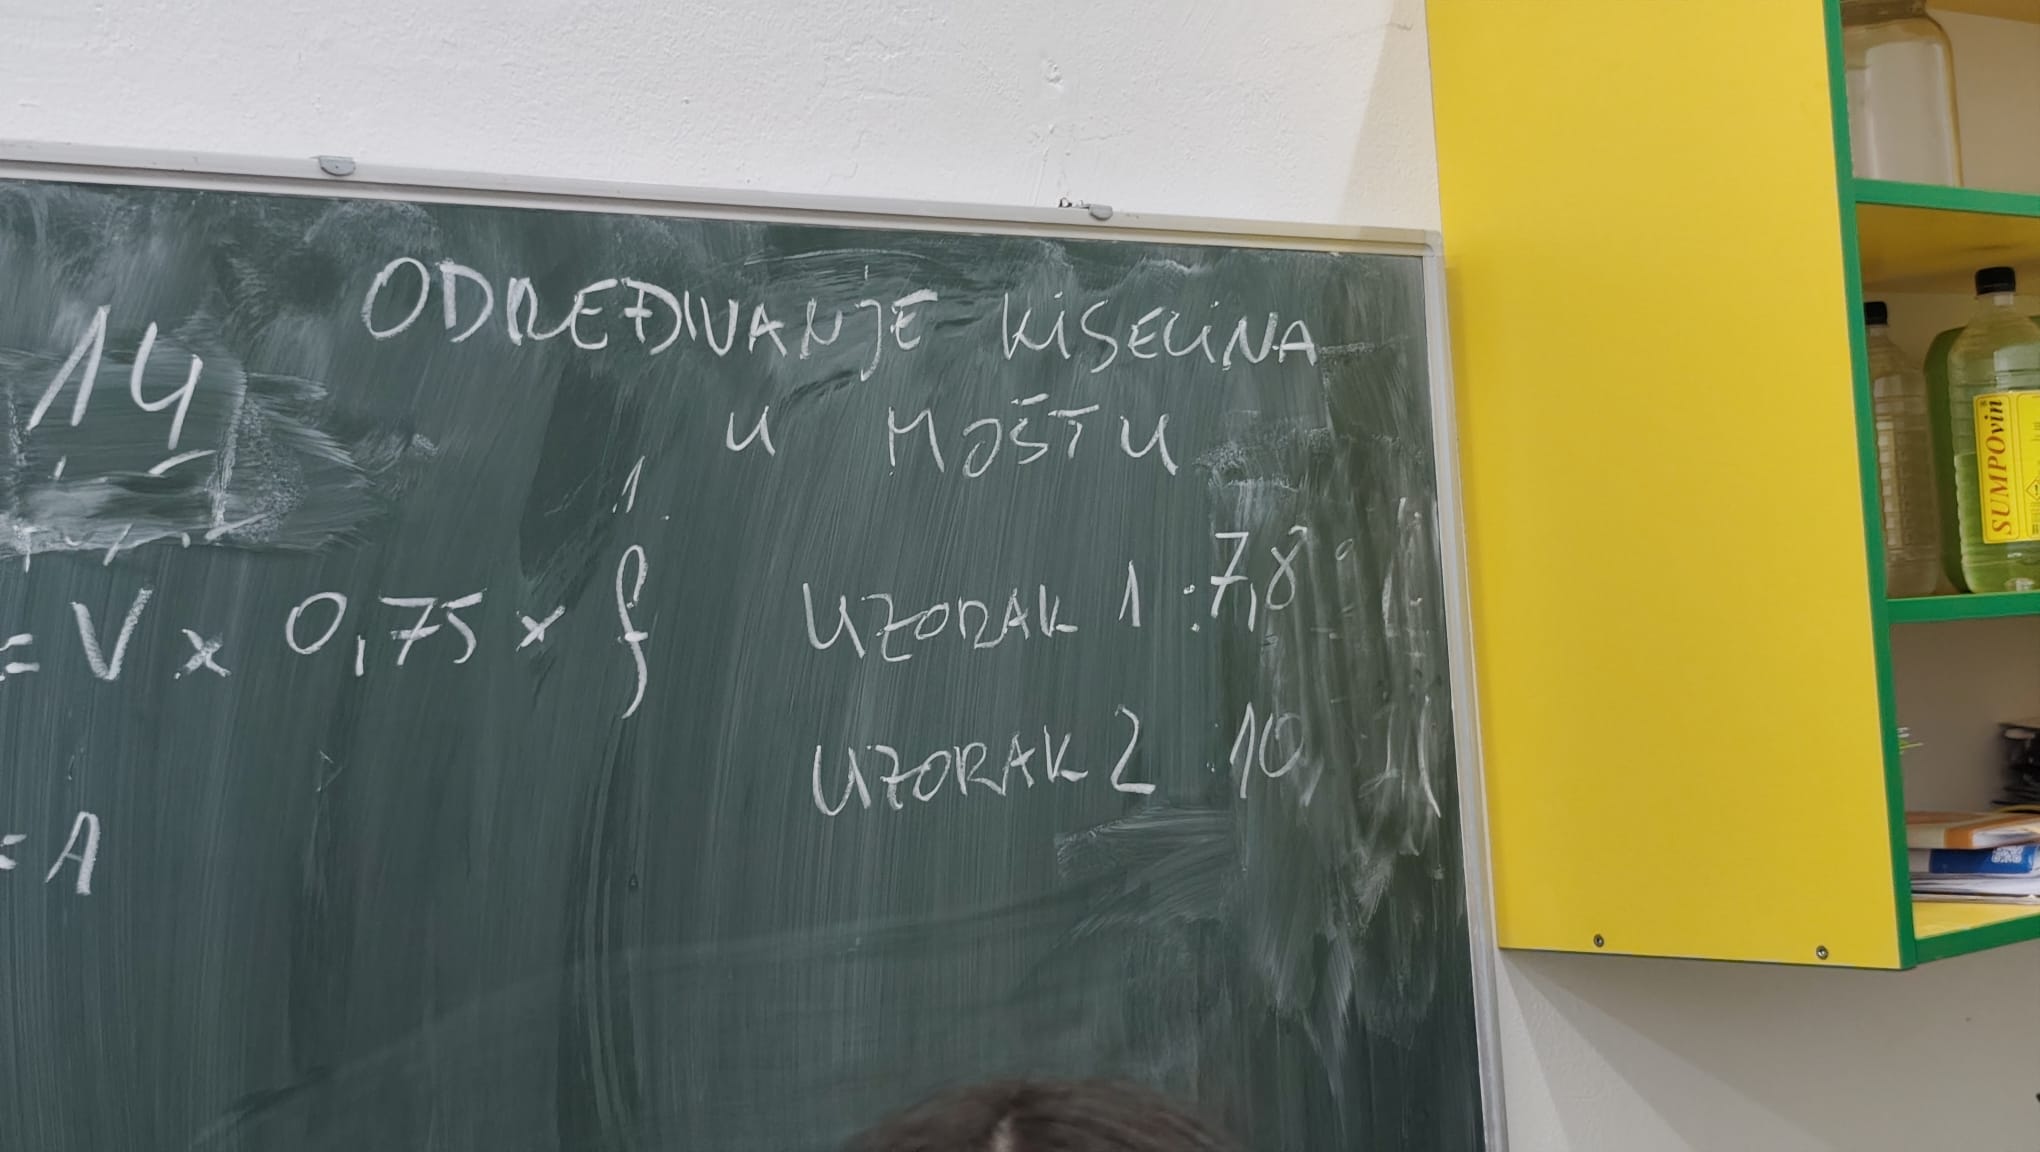 ODREĐIVANJE KISELINA
U MOŠTU
14
= V x 0,75 x f
UZORAK 1 : 7,8
UZORAK 2 : 10
= A
SUMPOvin